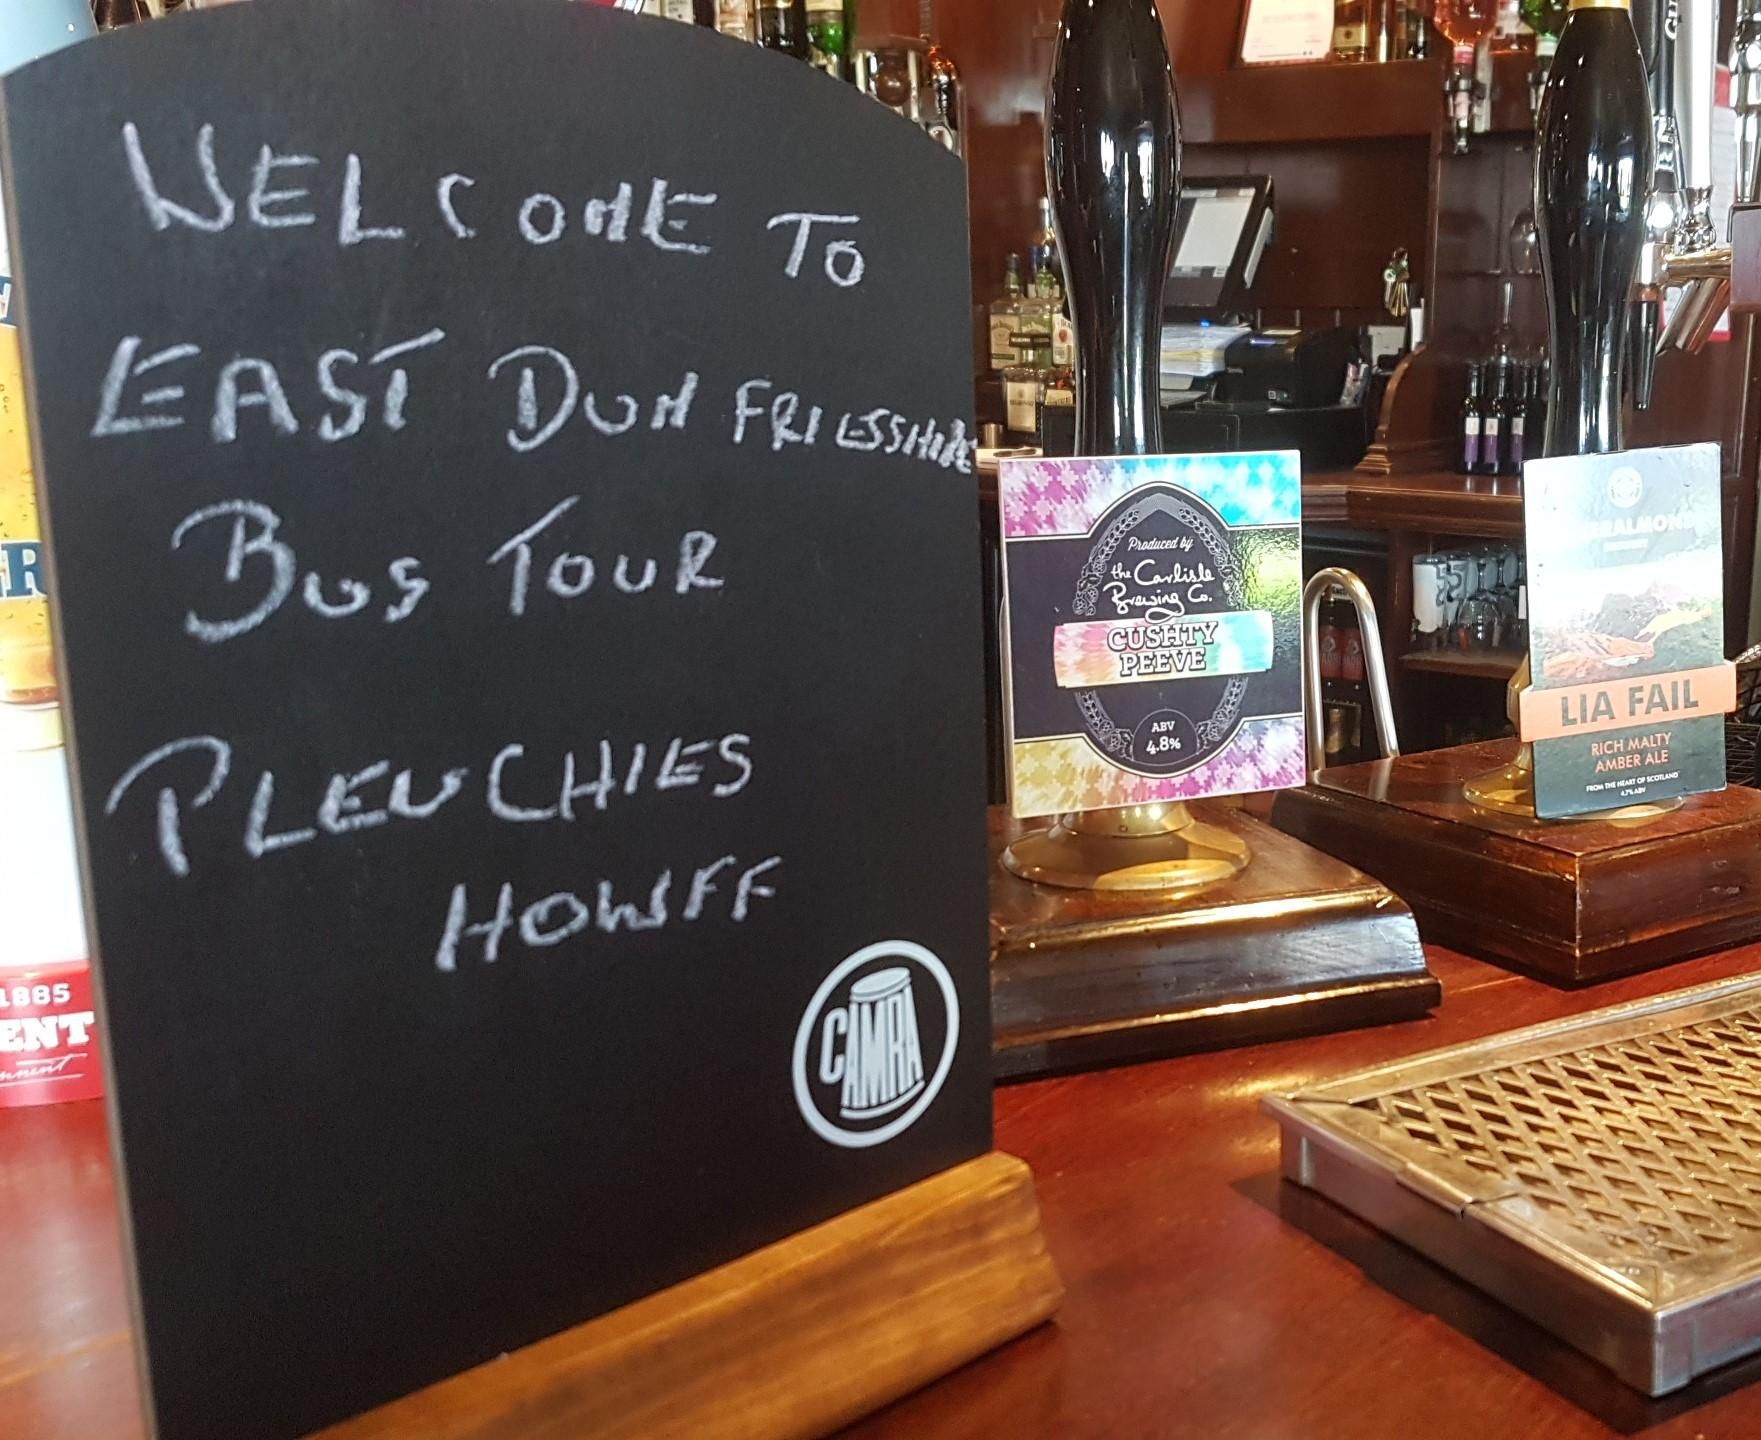 WELCOME TO
EAST DUMFRIESSHIRE
BUS TOUR
PLENCHIES
HOWFF
CAMRA
1885
Produced by
the Carlisle
Brewing Co.
CUSHTY
PEEVE
ABV
4.8%
LIA FAIL
RICH MALTY
AMBER ALE
FROM THE HEART OF SCOTLAND
4.7% ABV